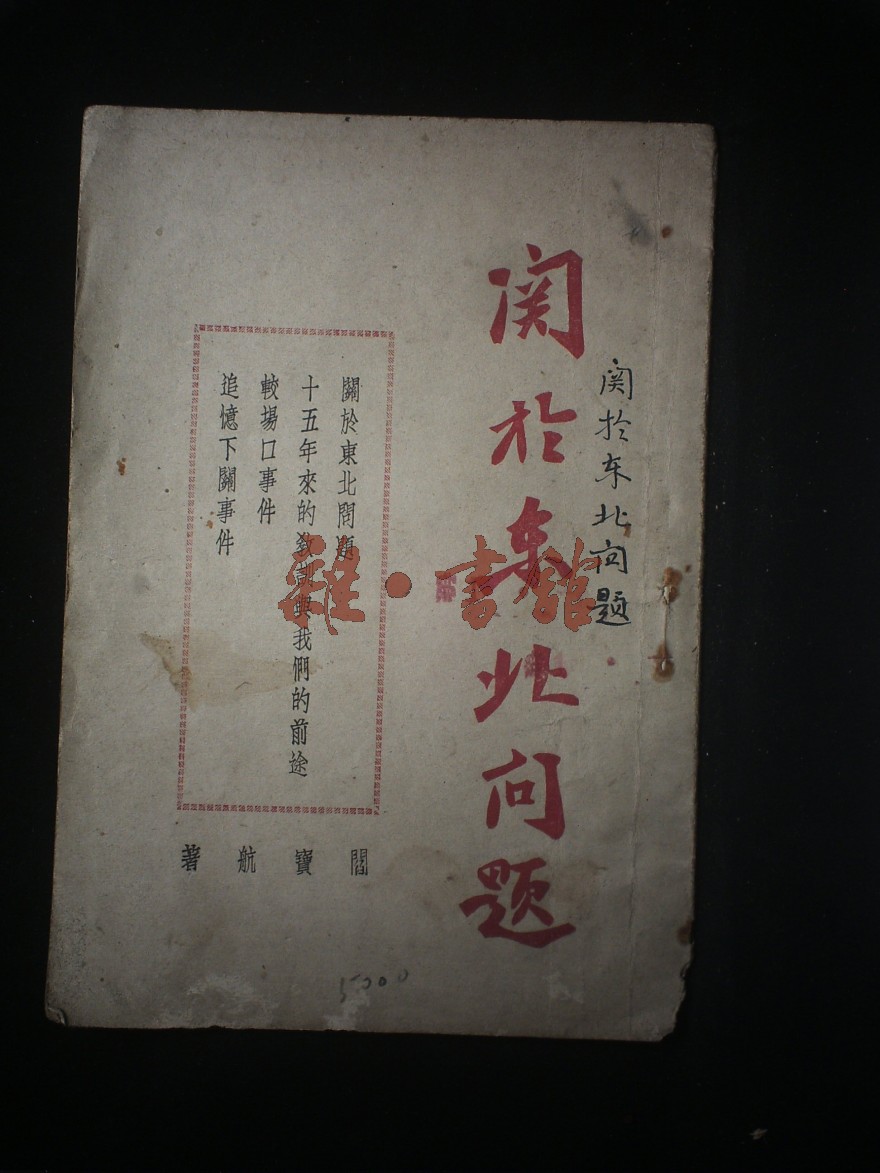 関於东北问题
関於东北问题
關於東北問題
十五年來的教訓與我們的前途
較場口事件
追憶下關事件
閻寶航著
5000
雜·書館